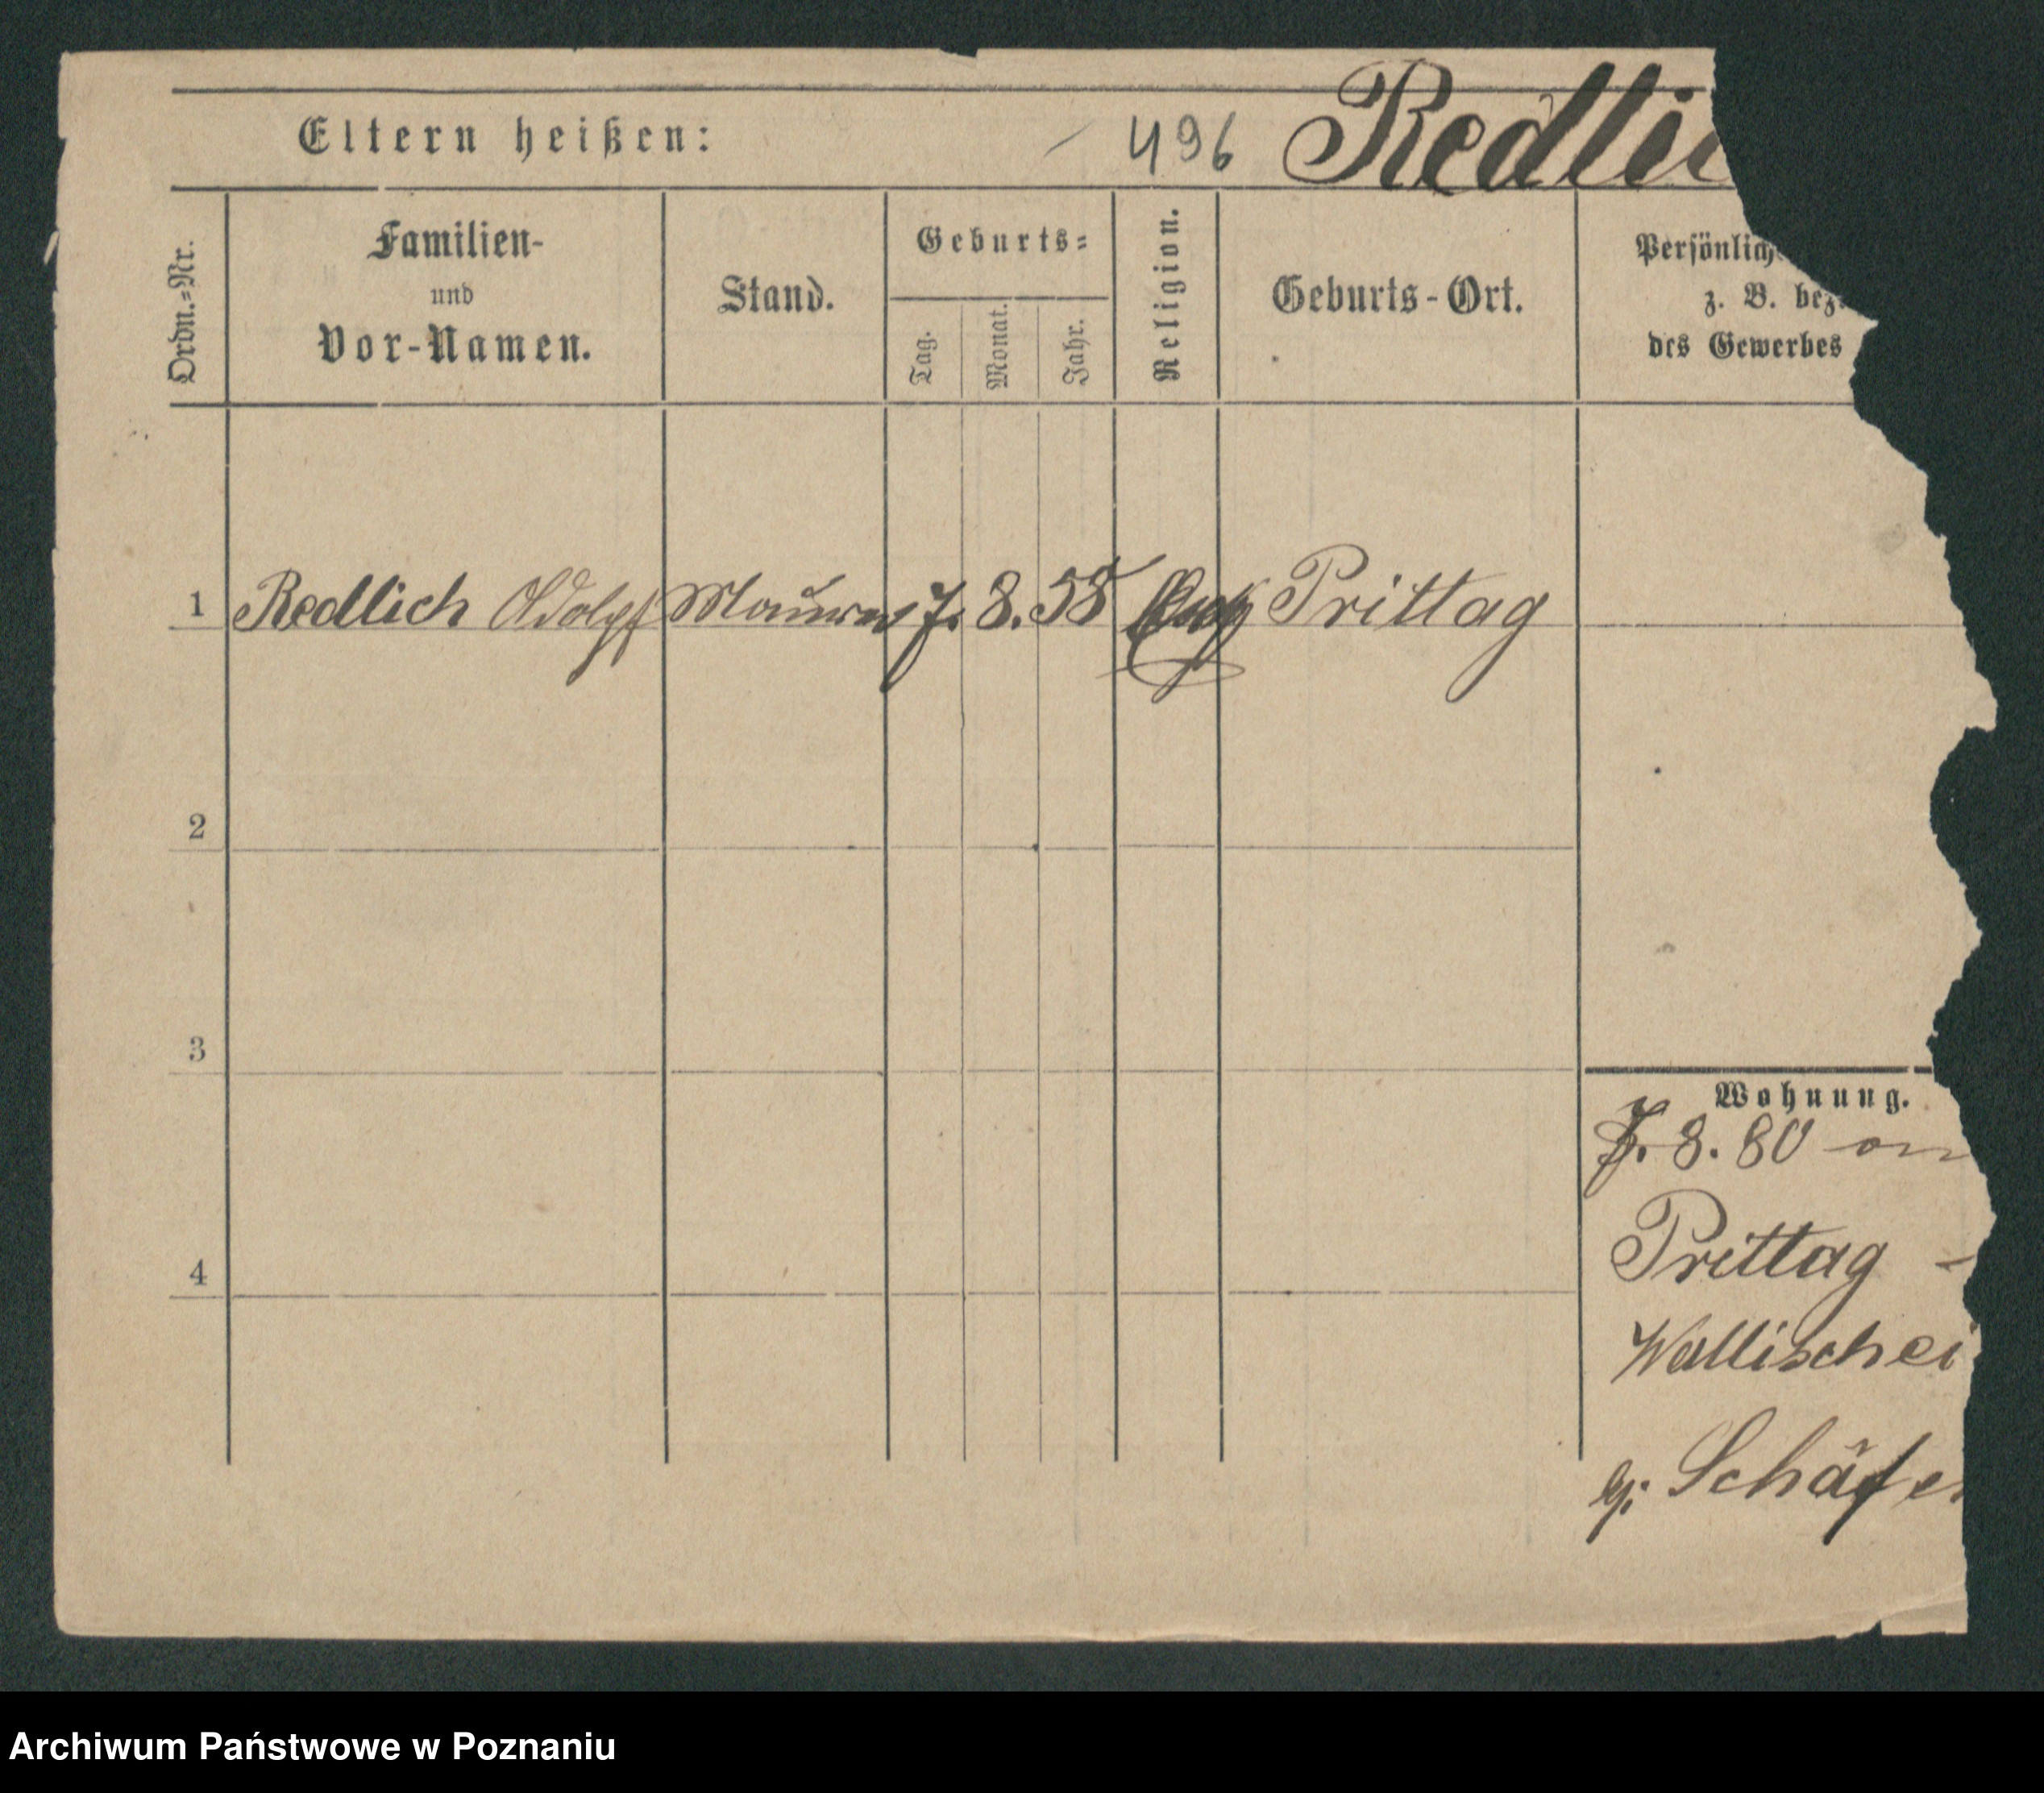 Eltern heißen: 496 Redlic
Ordn.=Nr.
Familien-
und
Vor-Namen.
Stand.
Geburts=
Tag.
Monat.
Jahr.
Religion.
Geburts-Ort.
Persönlich
z. B. bez.
des Gewerbes
1 Redlich Adolph Maurer 7. 8. 58 Prittag
2
3
4
Wohnung.
7. 8. 80
Prittag -
Wallischei
Schäfer
Archiwum Państwowe w Poznaniu